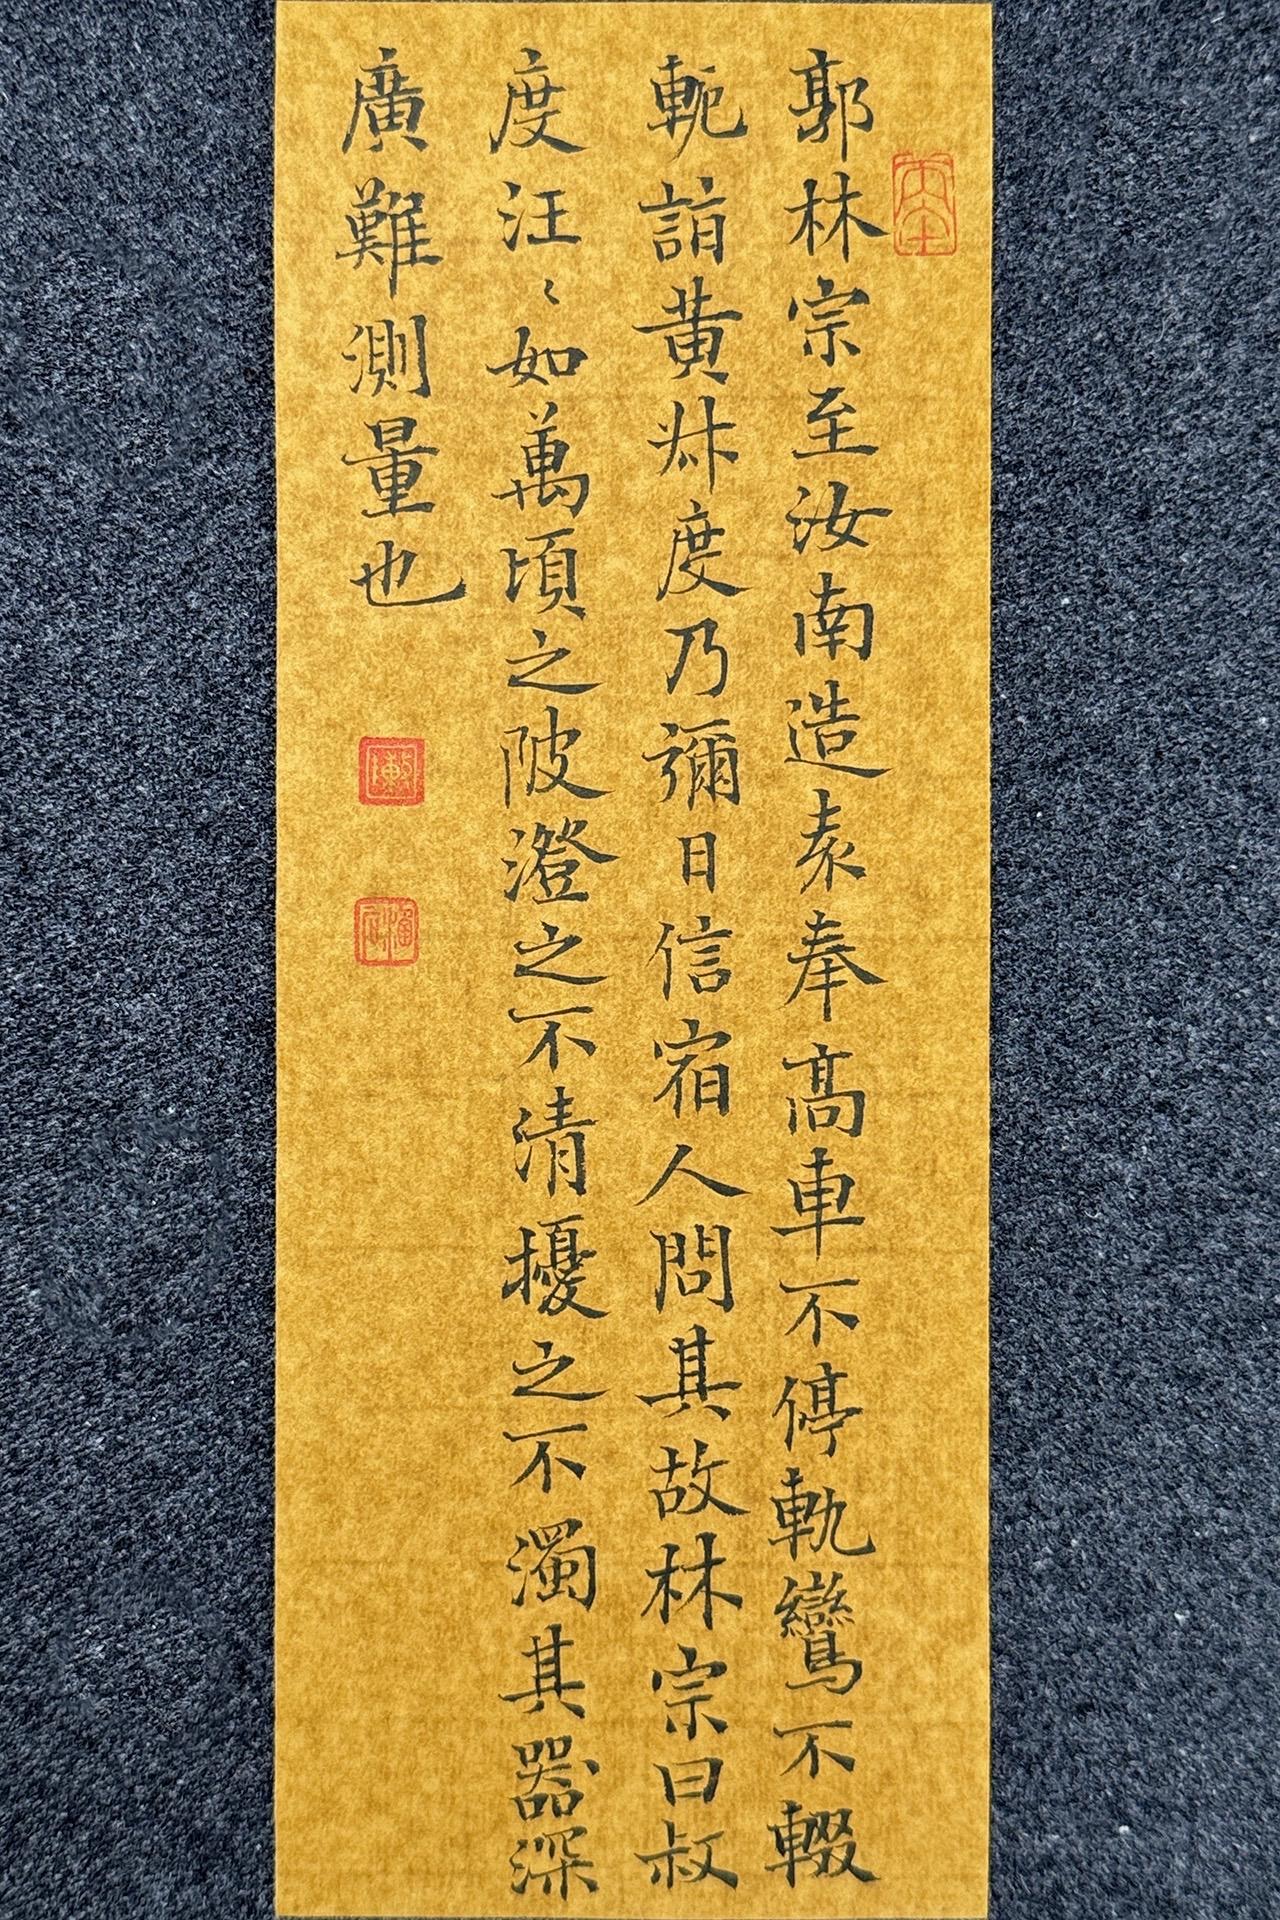 郭林宗至汝南造袁奉高車不停軌鸞不輟
軛詣黄叔度乃彌日信宿人問其故林宗曰叔
度汪〻如萬頃之陂澄之不清擾之不濁其器深
廣難測量也